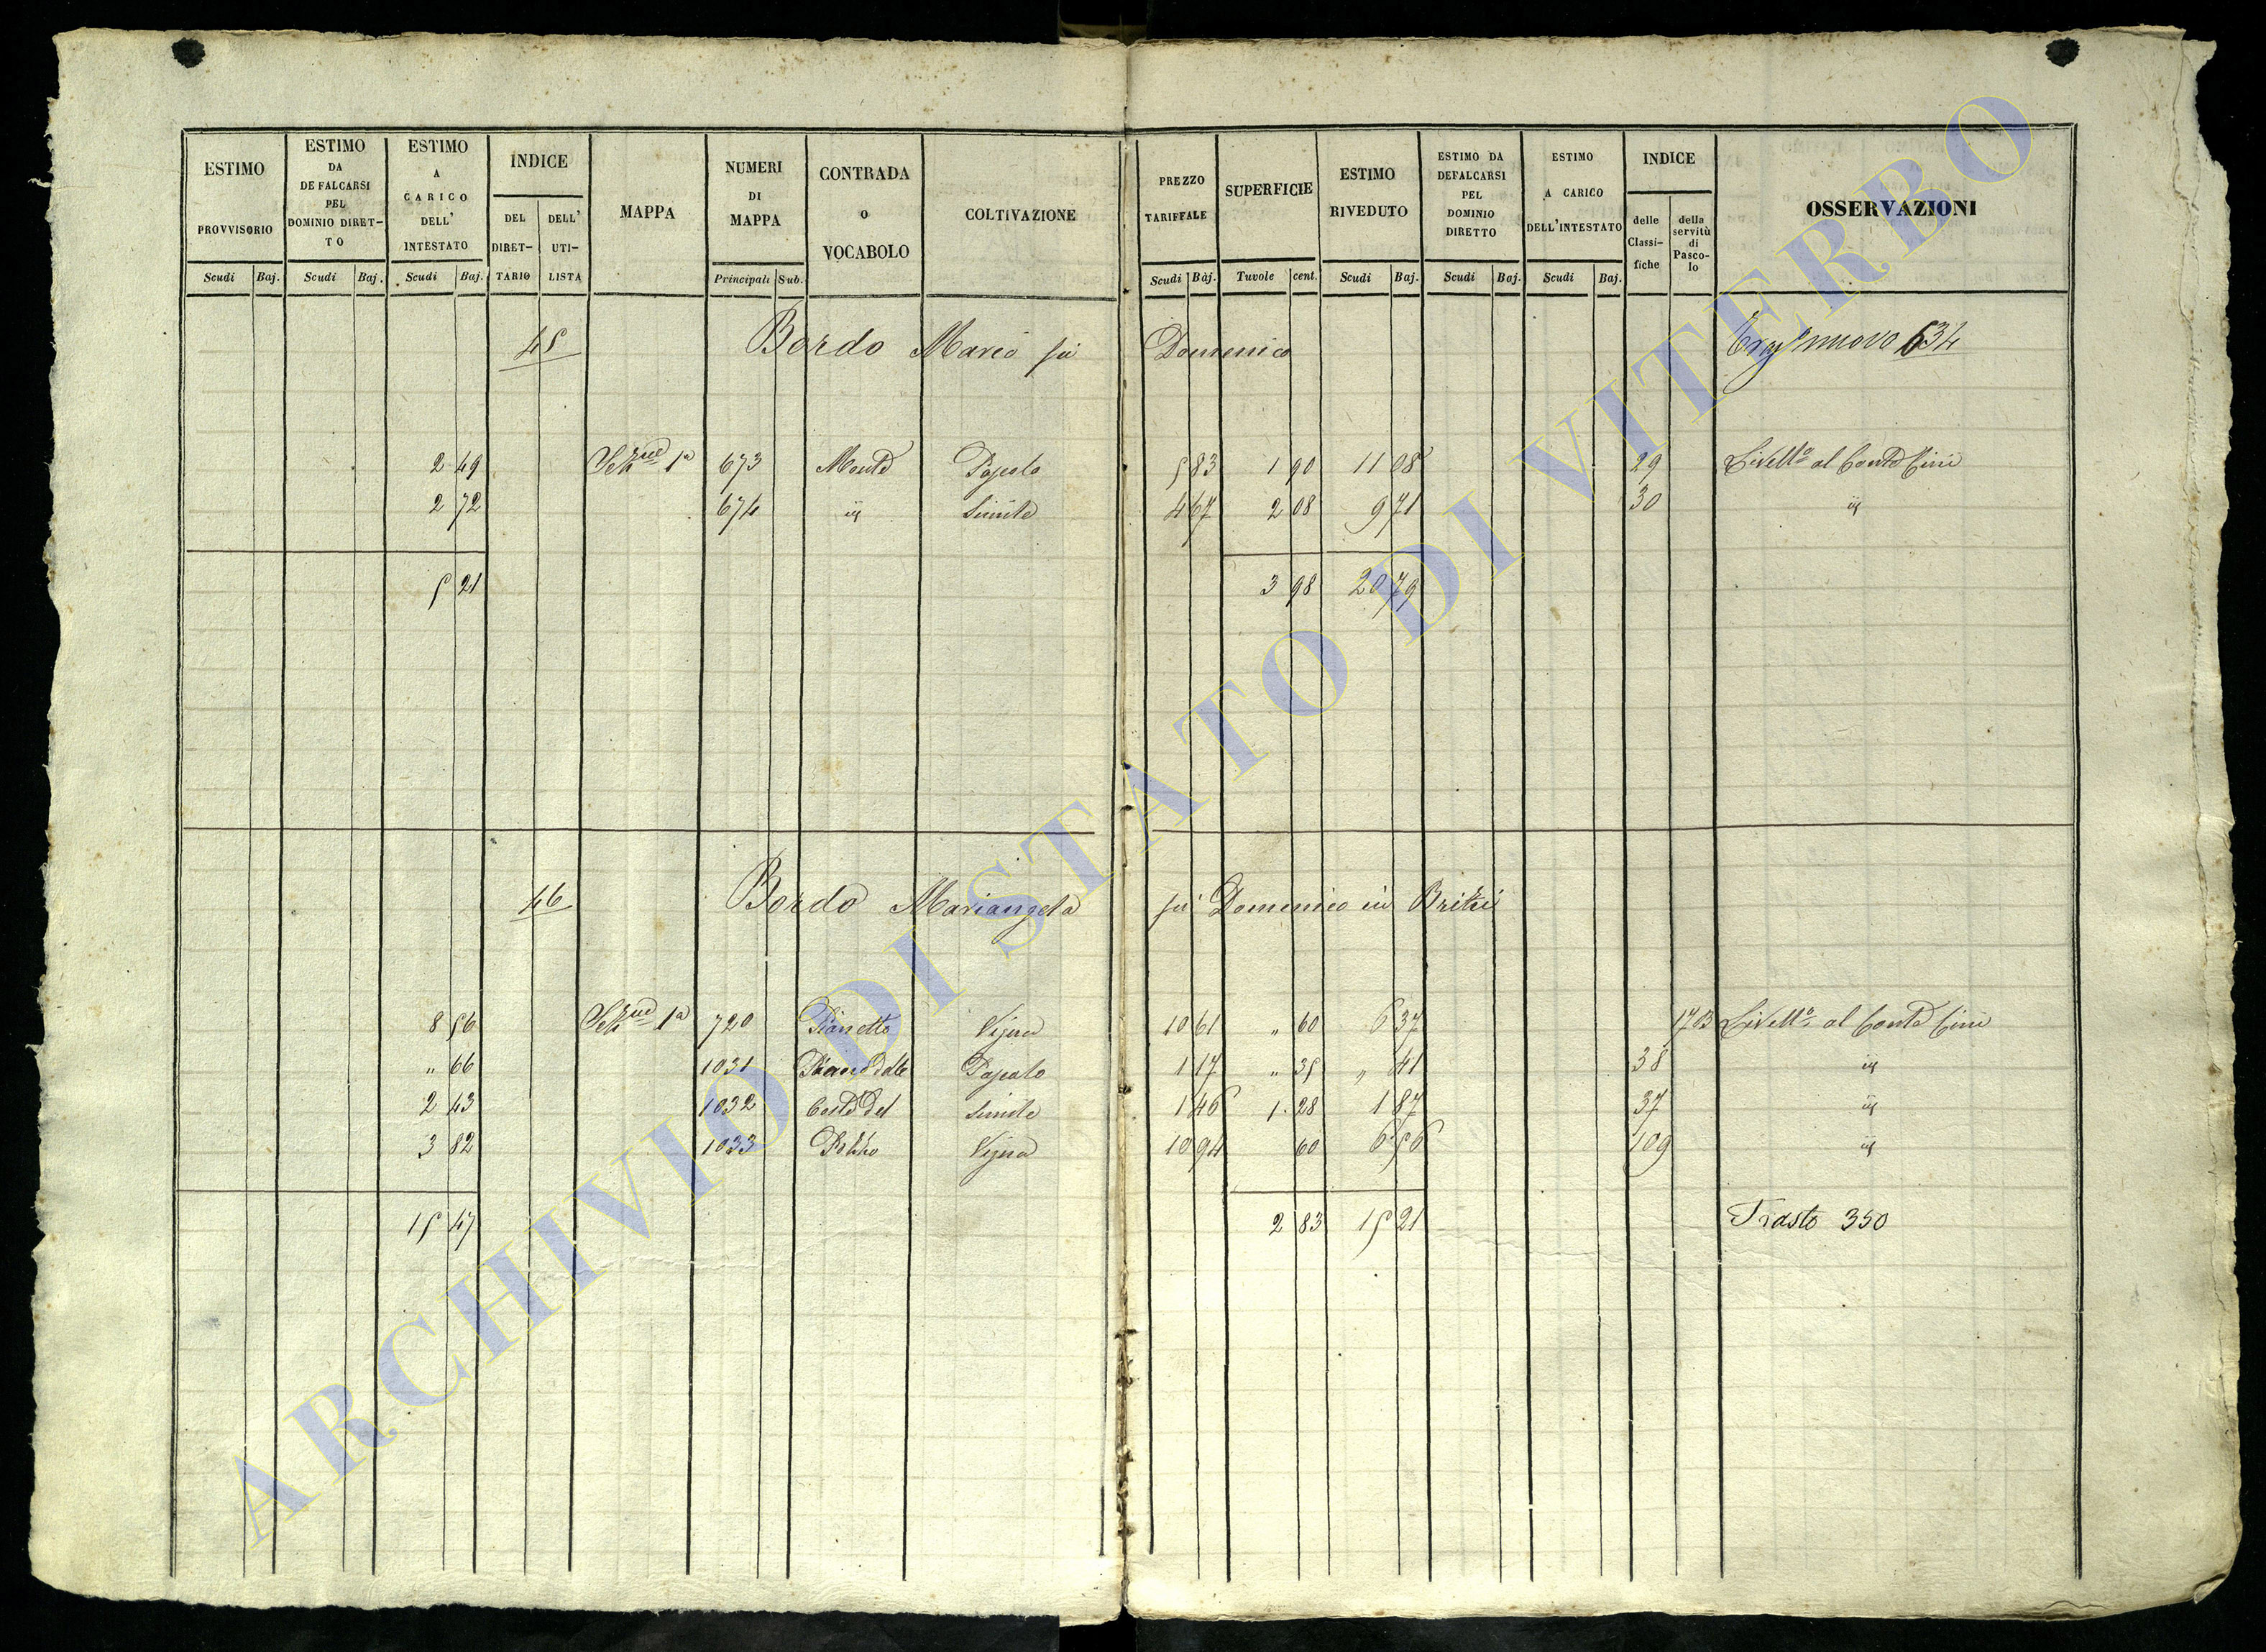 ESTIMO PROVVISORIO
ESTIMO DA DEFALCARSI PEL DOMINIO DIRET- TO
ESTIMO A CARICO DELL' INTESTATO
INDICE
DEL DIRET- TARIO
DELL' UTI- LISTA
MAPPA
NUMERI DI MAPPA
CONTRADA O VOCABOLO
COLTIVAZIONE
PREZZO TARIFFALE
SUPERFICIE
ESTIMO RIVEDUTO
ESTIMO DA DEFALCARSI PEL DOMINIO DIRETTO
ESTIMO A CARICO DELL'INTESTATO
INDICE
delle Classi- fiche
della servitù di Pasco- lo
OSSERVAZIONI
Scudi Baj. Scudi Baj. Scudi Baj. Principali Sub. Scudi Baj. Tavole cent. Scudi Baj. Scudi Baj. Scudi Baj.
45 Bordo Mario fu Domenico 634
2 49 1ª 673 Monte Pascolo 5 83 1 90 11 08 29 Livello al Conte Cini
2 72 674 id Simile 4 67 2 08 9 71 30 id
5 21 3 98 20 79
46 Bordo Mariangela fu Domenico in Brizi
8 56 1ª 720 Pianetto Vigna 10 61 " 60 6 37 1703 Livello al Conte Cini
" 66 1031 Pascolo 1 17 " 35 " 41 38 id
2 43 1032 Costa del Simile 1 46 1 28 1 87 37 id
3 82 1033 Pozzo Vigna 10 94 60 6 56 109 id
15 47 2 83 15 21 Trasto 350
ARCHIVIO DI STATO DI VITERBO